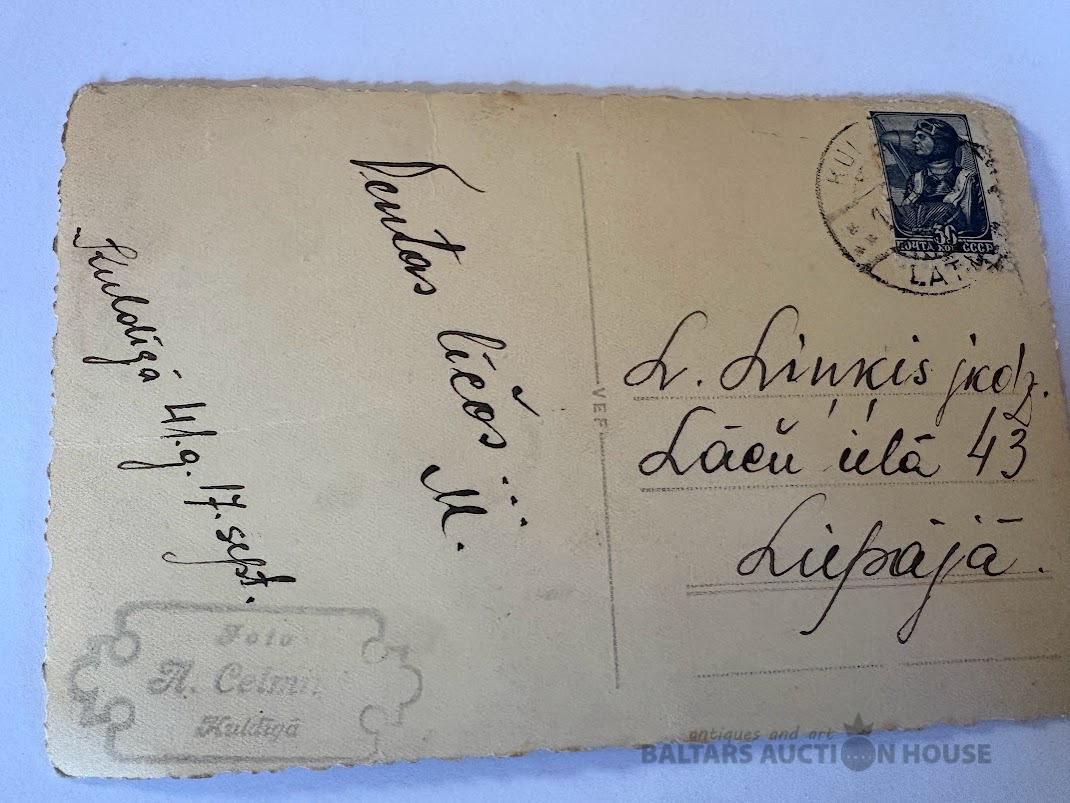 Ventas līčos...
M.
Kuldīgā 41.g. 17. sept.
Foto
A. Celmiņ
Kuldīgā
VEF
KUL
LATV
30
ПОЧТА КОП СССР
L. Linkis jkdz.
Lāču ielā 43
Liepājā.
antiques and art
BALTARS AUCTION HOUSE